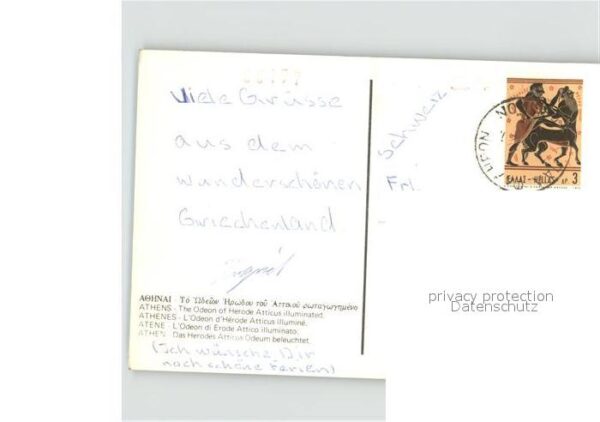 Viele Grüsse
aus dem
wunderschönen
Griechenland
ΑΘΗΝΑΙ Τὸ Ὠδεῖον Ἡρώδου τοῦ Ἀττικοῦ φωταγωγημένο
ATHENS - The Odeon of Herode Atticus illuminated.
ATHENES - L'Odéon d'Hérode Atticus illuminé.
ATENE - L'Odeon di Erode Attico illuminato.
ATHEN - Das Herodes Atticus Odeum beleuchtet.
(Ich wünsche Dir
noch schöne Ferien)
Schweiz
Frl.
ΕΛΛΑΣ-HELLAS ΔΡ. 3
privacy protection
Datenschutz